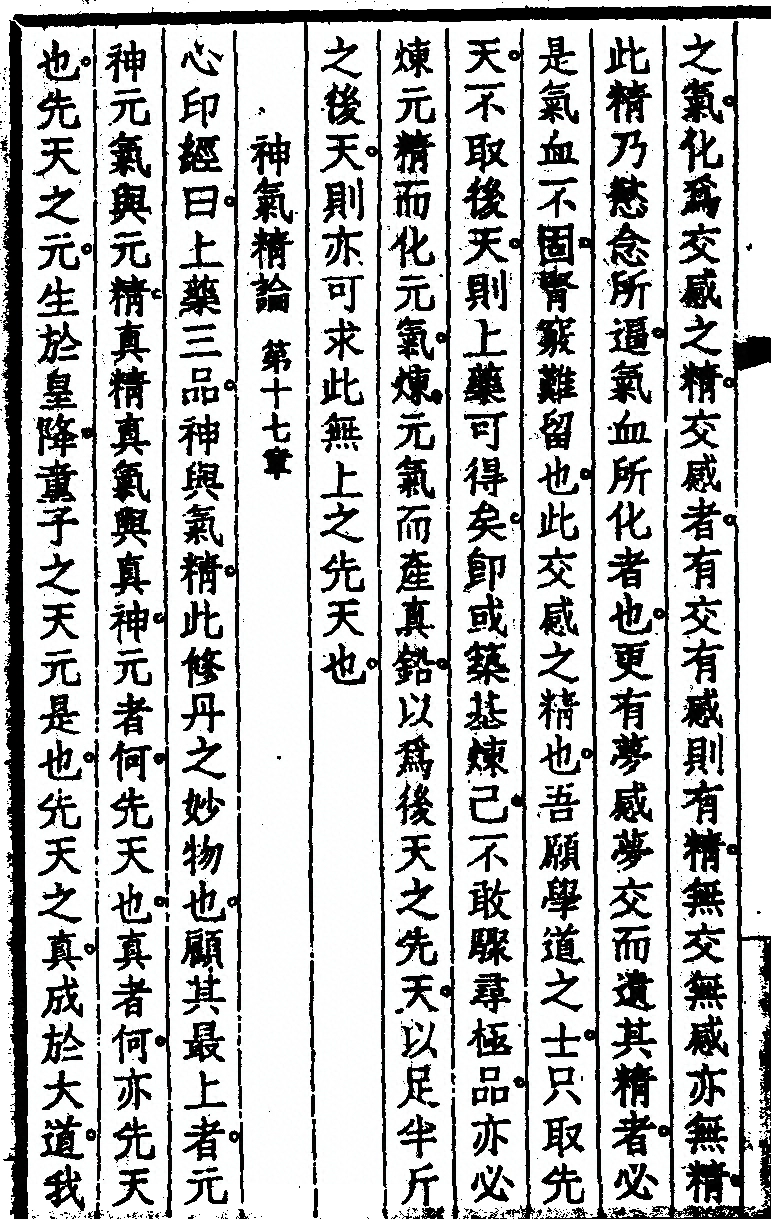 之氣化爲交感之精交感者有交有感則有精無交無感亦無精
此精乃慾念所逼氣血所化者也更有夢感夢交而遺其精者必
是氣血不固腎竅難留也此交感之精也吾願學道之士只取先
天不取後天則上藥可得矣卽或築基煉己不敢驟尋極品亦必
煉元精而化元氣煉元氣而產真鉛以爲後天之先天以足半斤
之後天則亦可求此無上之先天也
神氣精論 第十七章
心印經曰上藥三品神與氣精此修丹之妙物也顧其最上者元
神元氣與元精真精真氣與真神元者何先天也真者何亦先天
也先天之元生於皇降童子之天元是也先天之真成於大道我